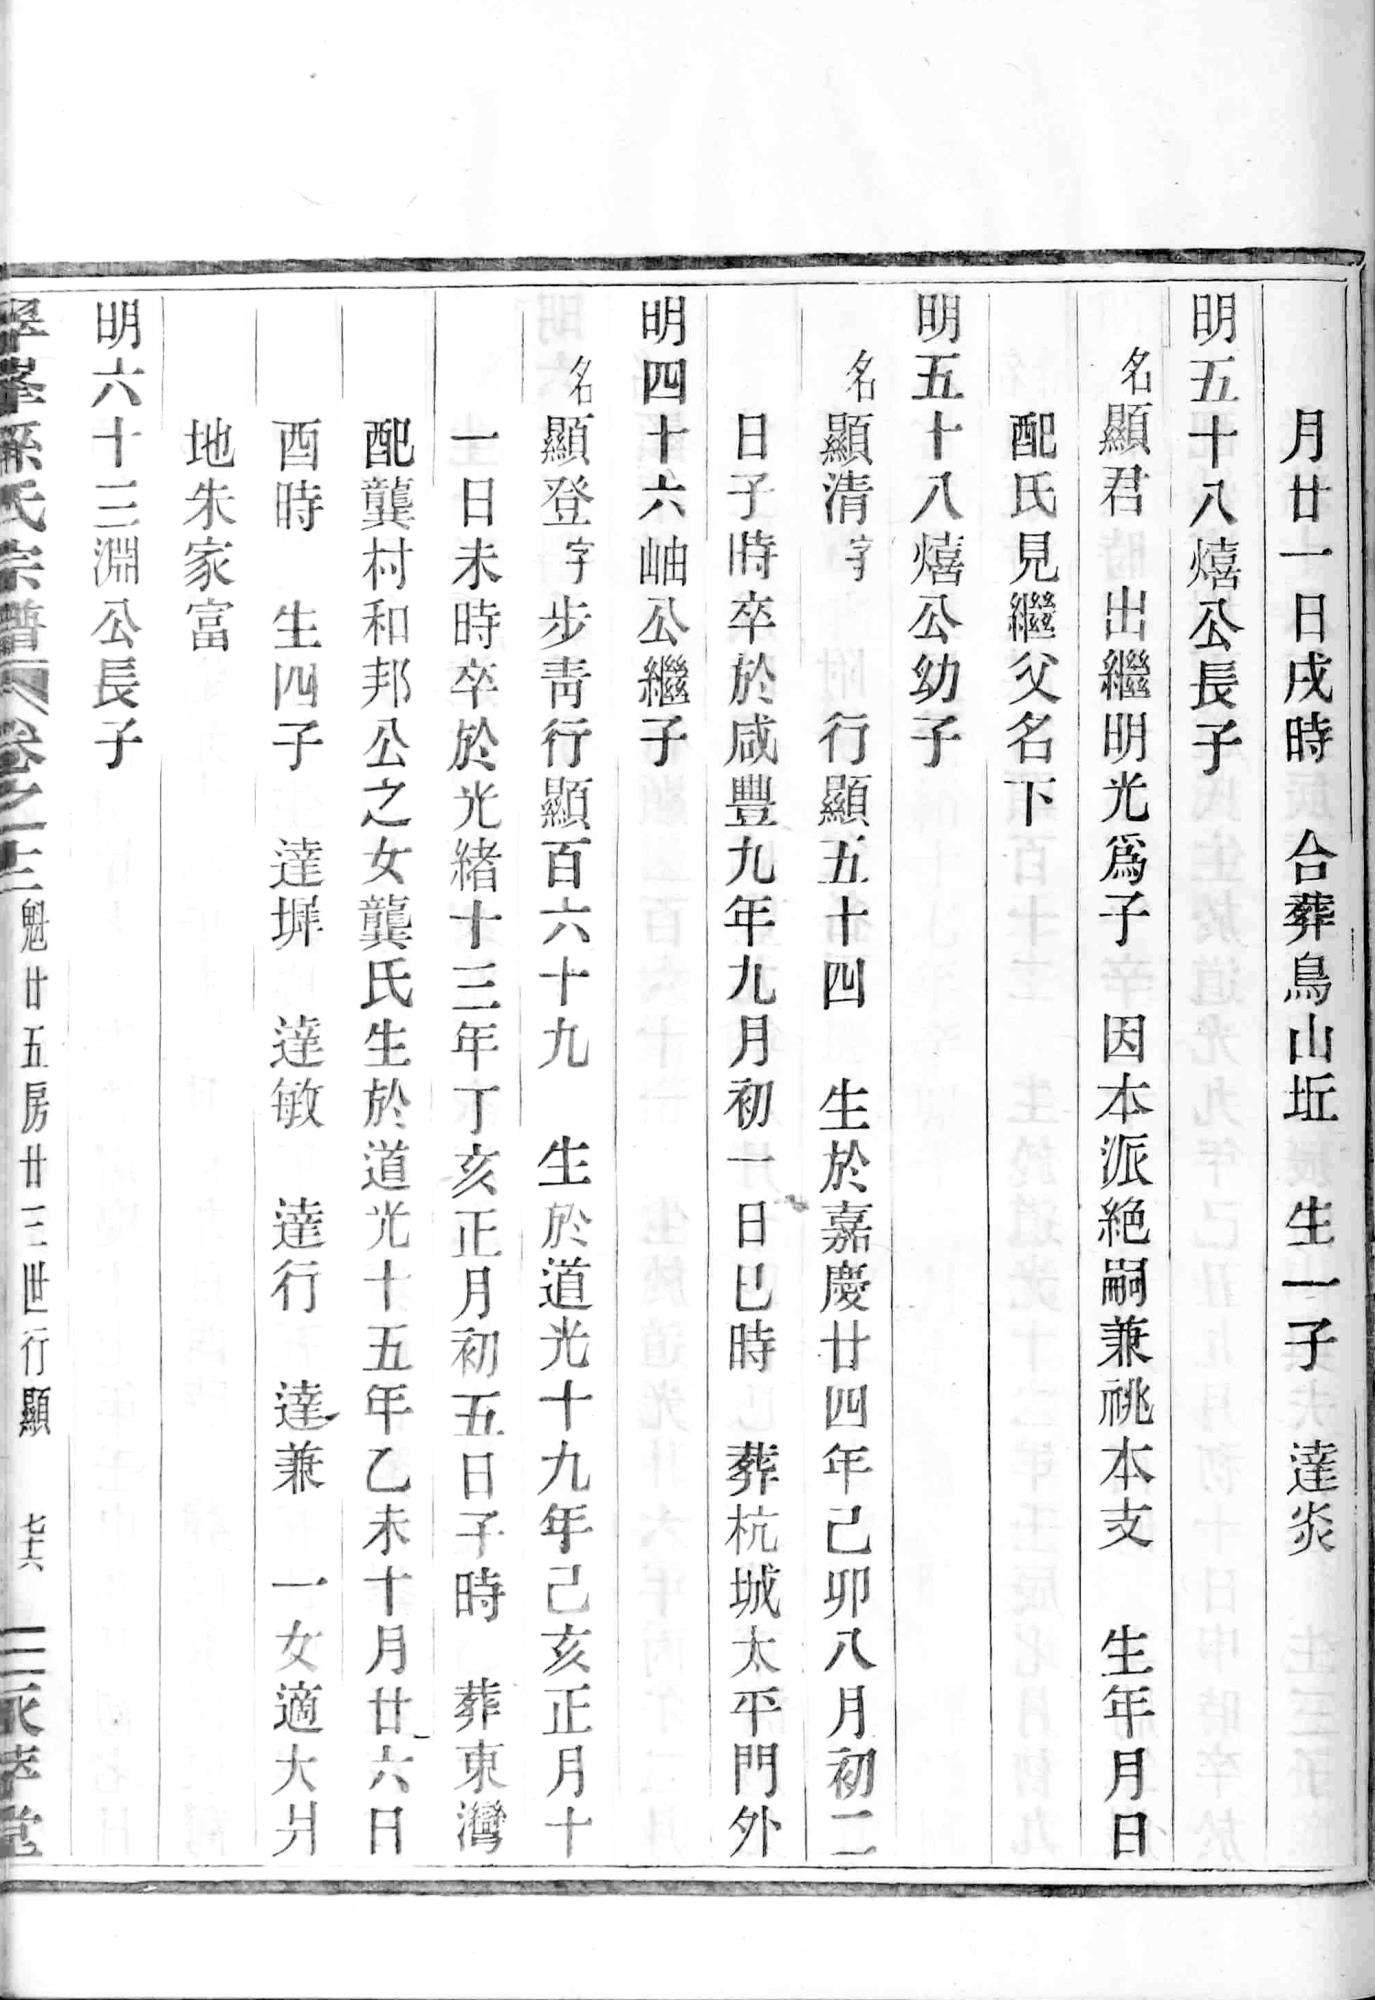 月廿一日戌時　合葬鳥山坵　生一子　達炎
明五十八熺公長子
名顯君　出繼明光爲子　因本派絶嗣兼祧本支　生年月日
配氏見繼父名下
明五十八熺公幼子
名顯清字　　行顯五十四　生於嘉慶廿四年己卯八月初二
日子時卒於咸豐九年九月初一日巳時　葬杭城太平門外
明四十六岫公繼子
名顯登字步靑行顯百六十九　生於道光十九年己亥正月十
一日未時卒於光緒十三年丁亥正月初五日子時　葬東灣
配龔村和邦公之女龔氏生於道光十五年乙未十月廿六日
酉時　生四子　達墀　達敏　達行　達兼　一女適大爿
地朱家富
明六十三淵公長子
峯孫氏宗譜　卷之十三　魁廿五房廿三世行顯　七十六　孝堂